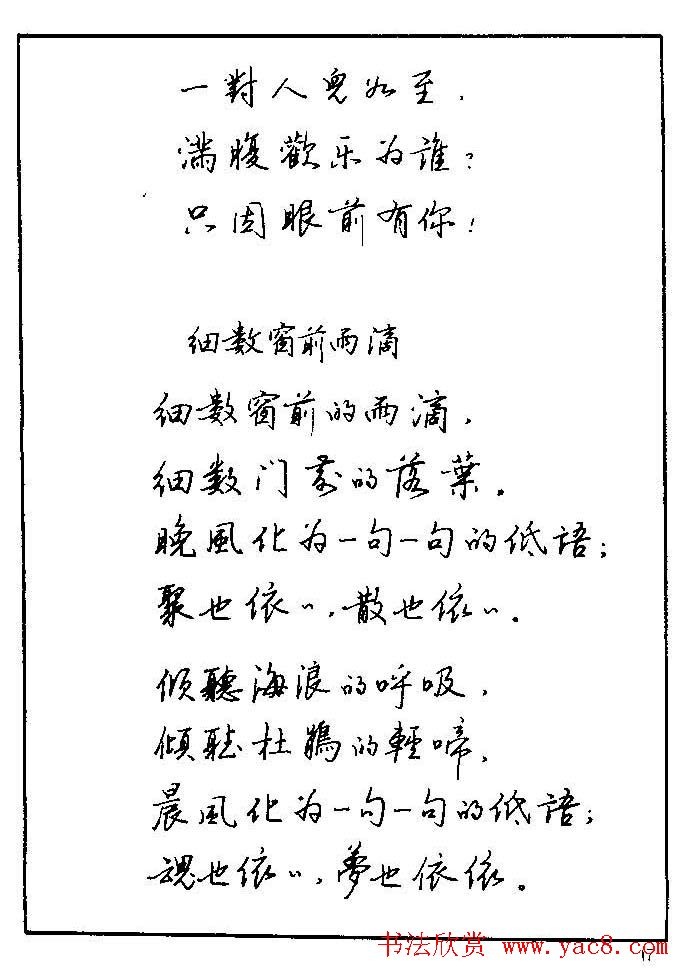 一對人兒如至，
满腹歡乐为誰？
只因眼前有你！
细数窗前雨滴
细数窗前的雨滴，
细数门前的落葉。
晚風化为一句一句的低語；
聚也依〻，散也依〻。
倾聽海浪的呼吸，
倾聽杜鹃的輕啼，
晨風化为一句一句的低語；
魂也依〻，夢也依依。
书法欣赏 www.yac8.com